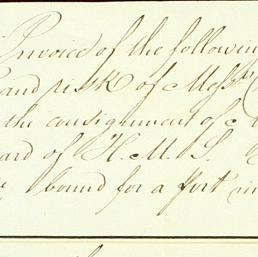 Invoice of the followin
and risk of Messrs
the consignment of
ard of H. M. S.
bound for a Port in